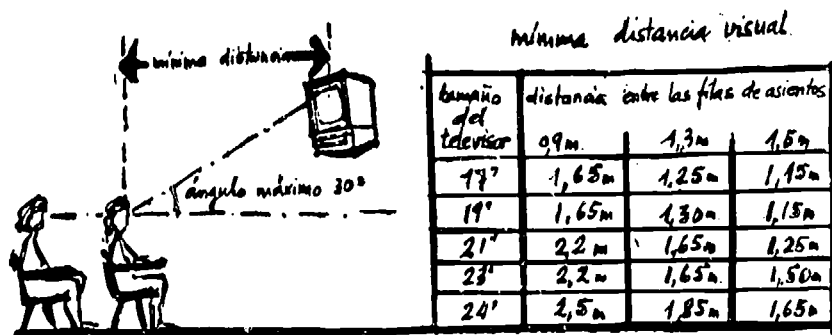 mínima distancia visual.
mínima distancia
ángulo máximo 30º
tamaño del televisor
distancia entre las filas de asientos
0,9m. 1,3m 1,6m
17" 1,65m 1,25m 1,15m
19" 1,65m 1,30m 1,15m
21" 2,2m 1,65m 1,25m
23" 2,2m 1,65m. 1,50m
24" 2,5m 1,85m 1,65m